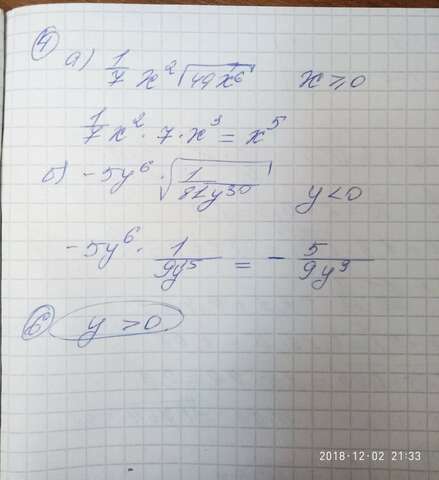 4
а) 1/7 x² √(49x⁶) x ≥ 0
1/7 x² · 7 · x³ = x⁵
б) -5y⁶ · √(1/(81y³⁰)) y < 0
-5y⁶ · 1/(9y⁵) = - 5/(9y⁹)
6 y > 0
2018-12-02 21:33